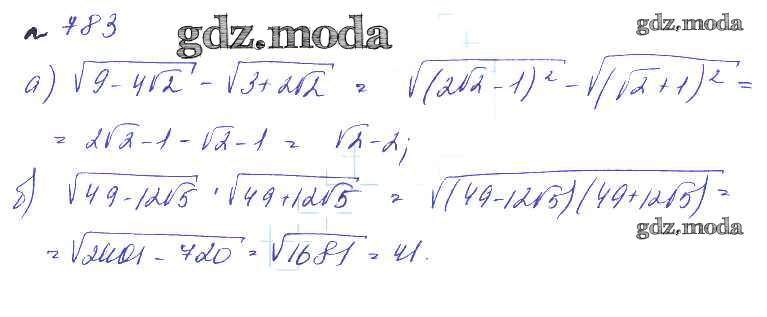 № 783
gdz.moda
gdz.moda
а) √(9-4√2) - √(3+2√2) = √((2√2-1)²) - √((√2+1)²) =
= 2√2-1-√2-1 = √2-2;
б) √(49-12√5) · √(49+12√5) = √((49-12√5)(49+12√5)) =
gdz.moda
= √(2401-720) = √1681 = 41.